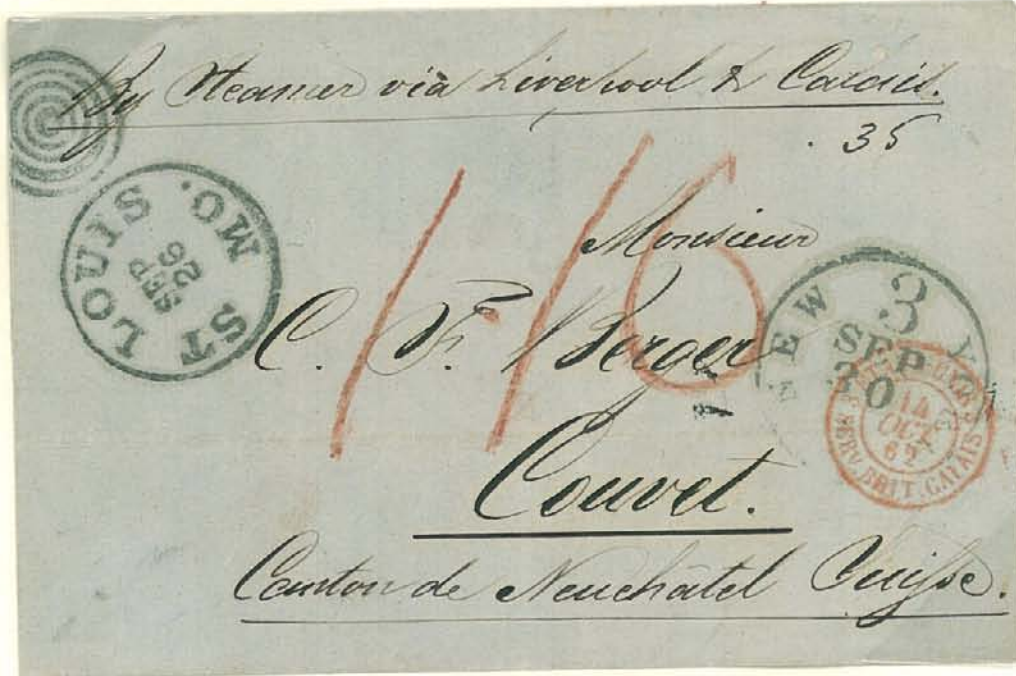 By Steamer via Liverpool & Calais.
35
ST LOUIS MO.
SEP
26
1/16
Monsieur
C. F. Berger
Couvet.
Canton de Neuchâtel Suisse.
NEW Y
3
SEP
30
14
OCT
62
SERV. BRIT. CALAIS